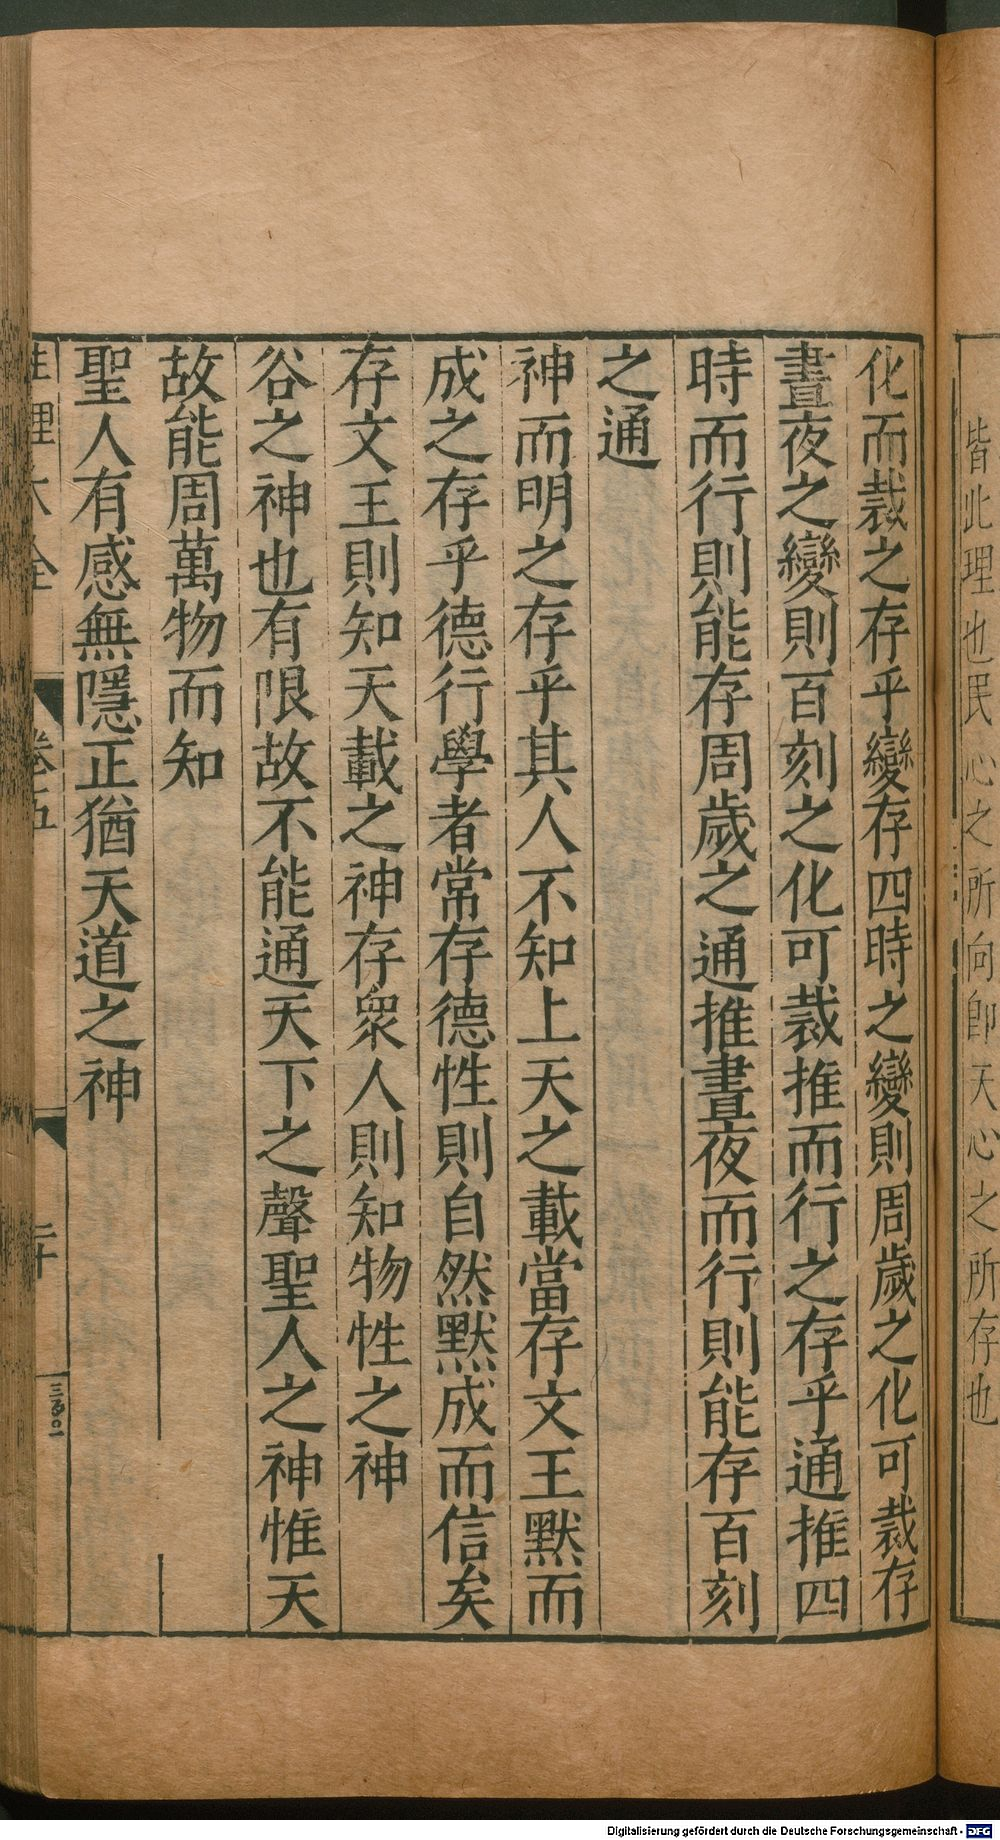 皆此理也民心之所向卽天心之所存也
化而裁之存乎變存四時之變則周歲之化可裁存
晝夜之變則百刻之化可裁推而行之存乎通推四
時而行則能存周歲之通推晝夜而行則能存百刻
之通
神而明之存乎其人不知上天之載當存文王默而
成之存乎德行學者常存德性則自然默成而信矣
存文王則知天載之神存衆人則知物性之神
谷之神也有限故不能通天下之聲聖人之神惟天
故能周萬物而知
聖人有感無隱正猶天道之神
性理大全 卷五 二十
三百〇二
Digitalisierung gefördert durch die Deutsche Forschungsgemeinschaft - DFG